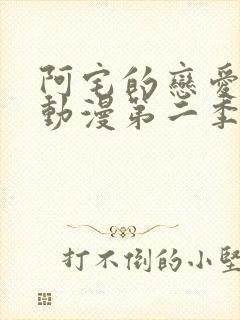 阿宅的戀愛
動漫第二季
打不倒的小堅